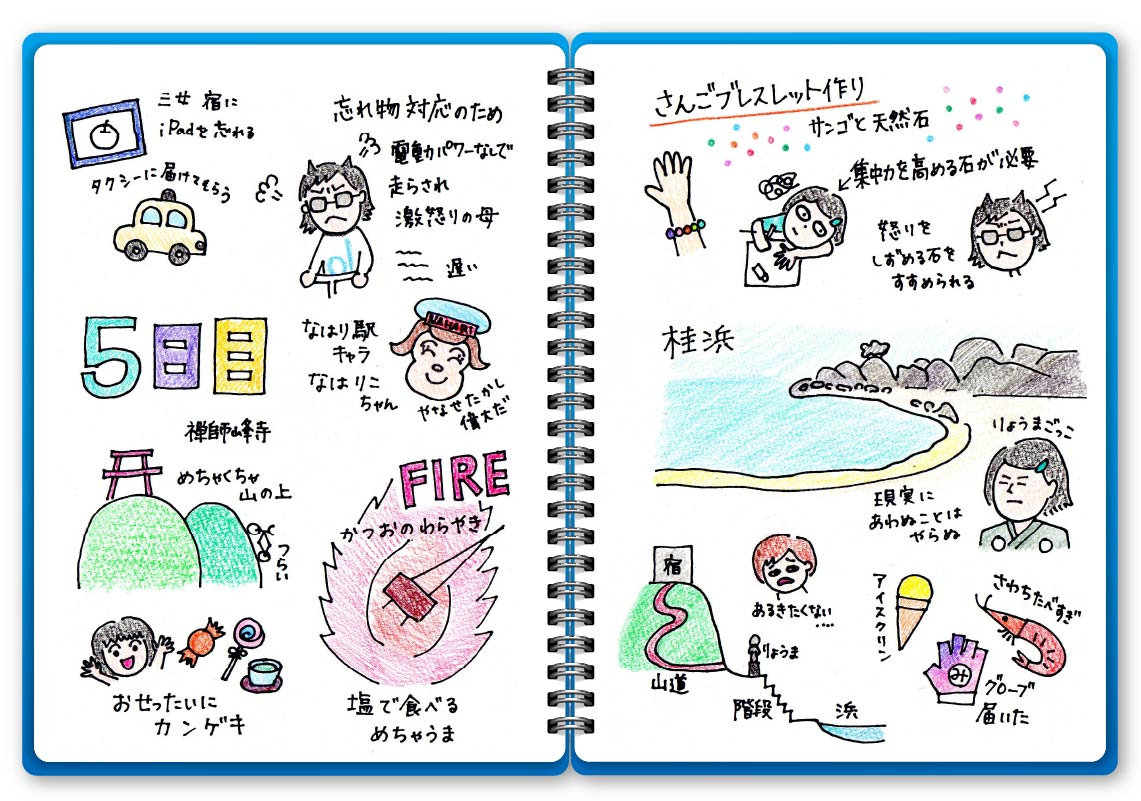 三女 宿に
iPadを忘れる
タクシーに届けてもらう
忘れ物対応のため
電動パワーなしで
走らされ
激怒りの母
遅い
5日目
なはり駅
キャラ
なはりこ
ちゃん
NAHARI
やなせたかし
偉大だ
禅師峰寺
めちゃくちゃ
山の上
つらい
FIRE
かつおのわらやき
おせったいに
カンゲキ
塩で食べる
めちゃうま
さんごブレスレット作り
サンゴと天然石
集中力を高める石が必要
怒りを
しずめる石を
すすめられる
桂浜
りょうまごっこ
現実に
あわぬことは
やらぬ
宿
山道
あるきたくない
....
りょうま
階段
浜
アイスクリン
さわちたべすぎ
み
グローブ
届いた